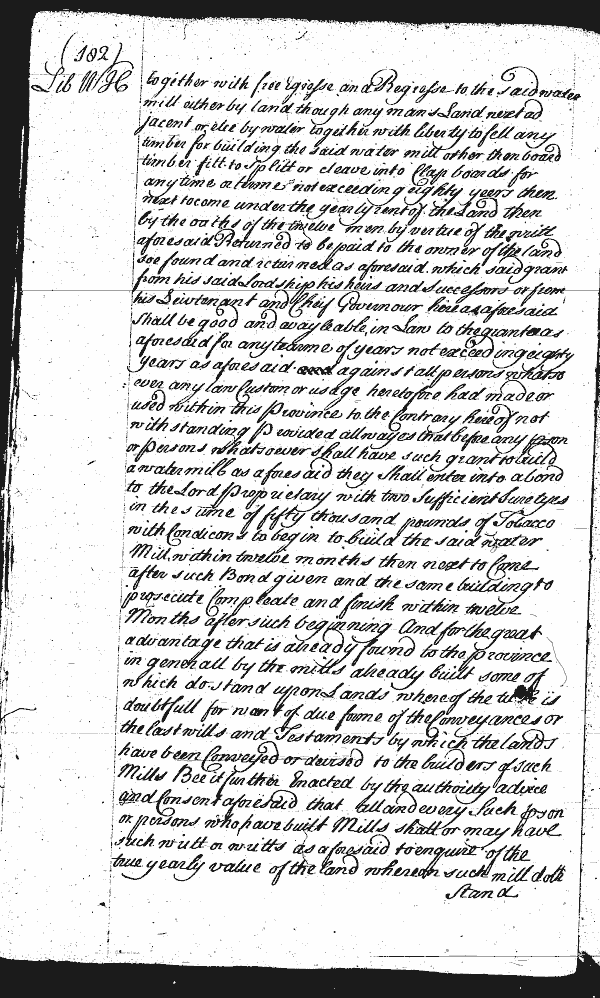 (182)
Lib WH
together with free Egresse and Regresse to the said water
mill either by land though any mans Land next ad
jacent or else by water together with liberty to fell any
timber for building the said water mill other then board
timber fitt to Splitt or cleave into Clap boards for
any time or terme not exceeding eighty yeers then
next to come under the yearly rent of the Land then
by the oaths of the twelve men by vertue of the writt
aforesaid Returned to be paid to the owner of the land
soe found and returned as aforesaid which said grant
from his said Lordship his heirs and Successors or from
his Leivtenant and Cheif Governour here as aforesaid
Shall be good and avayleable in Law to the grantee as
aforesaid for any tearme of years not exceeding eighty
years as aforesaid and against all persons whatso
ever any law Custom or usage heretofore had made or
used within this Province to the Contrary hereof not
withstanding Provided allwayes that before any pson
or persons whatsoever shall have such grant to build
a watermill as aforesaid they Shall enter into a bond
to the Lord Proprietary with two Sufficient Suretyes
in the sume of fifty thousand pounds of Tobacco
with Condicons to begin to build the said water
Mill within twelve months then next to Come
after such Bond given and the same building to
prosecute Compleate and finish within twelve
Months after such beginning And for the great
advantage that is already found to the province
in generall by the mills already built some of
which do stand upon Lands whereof the is
doubtfull for want of due forme of the Conveyances or
the last wills and Testaments by which the lands
have been Conveyed or devised to the builders of such
Mills Bee it further Enacted by the authority advice
and Consent aforesaid that all and every Such pson
or persons who have built Mills shall or may have
such writt or writts as aforesaid to enquire of the
true yearly value of the land whereon such mill doth
Stand